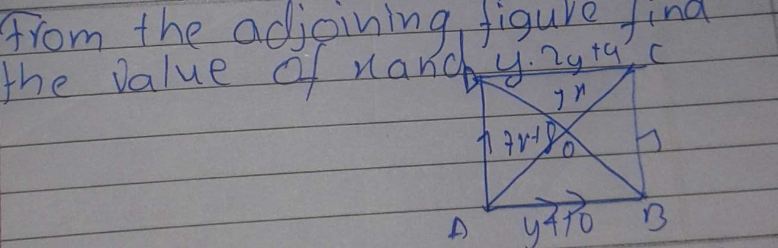 From the adjoining figure find
the value of x and y. 2y+4 C
yx
7x+8
O
A y+10 B